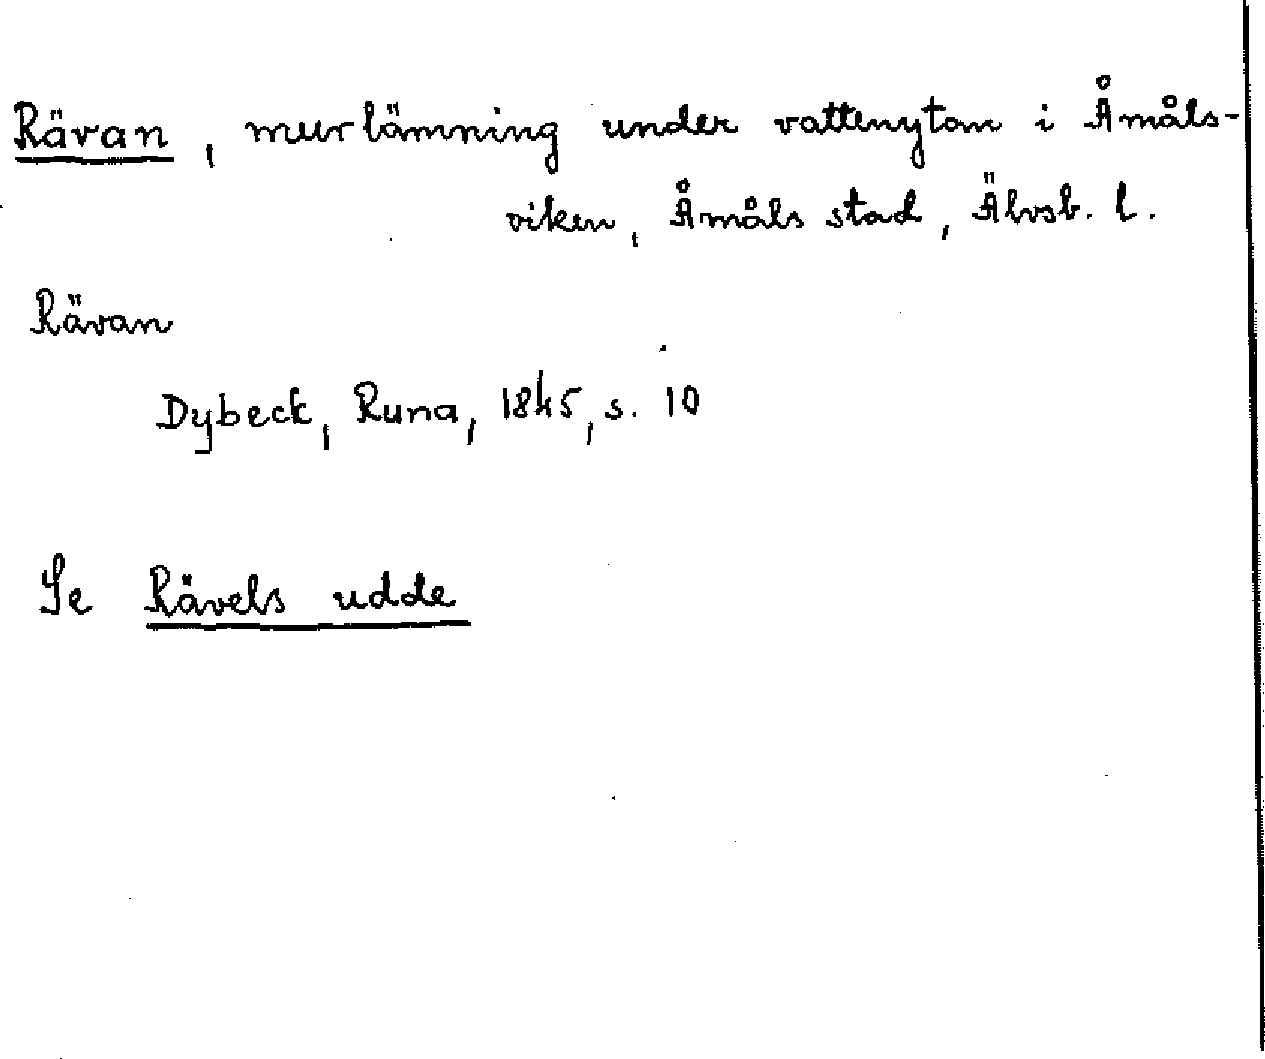 Rävan, murlämning under vattenytan i Åmåls-
viken, Åmåls stad, Älvsb. l.
Rävan
Dybeck, Runa, 1845, s. 10
Se Rävels udde